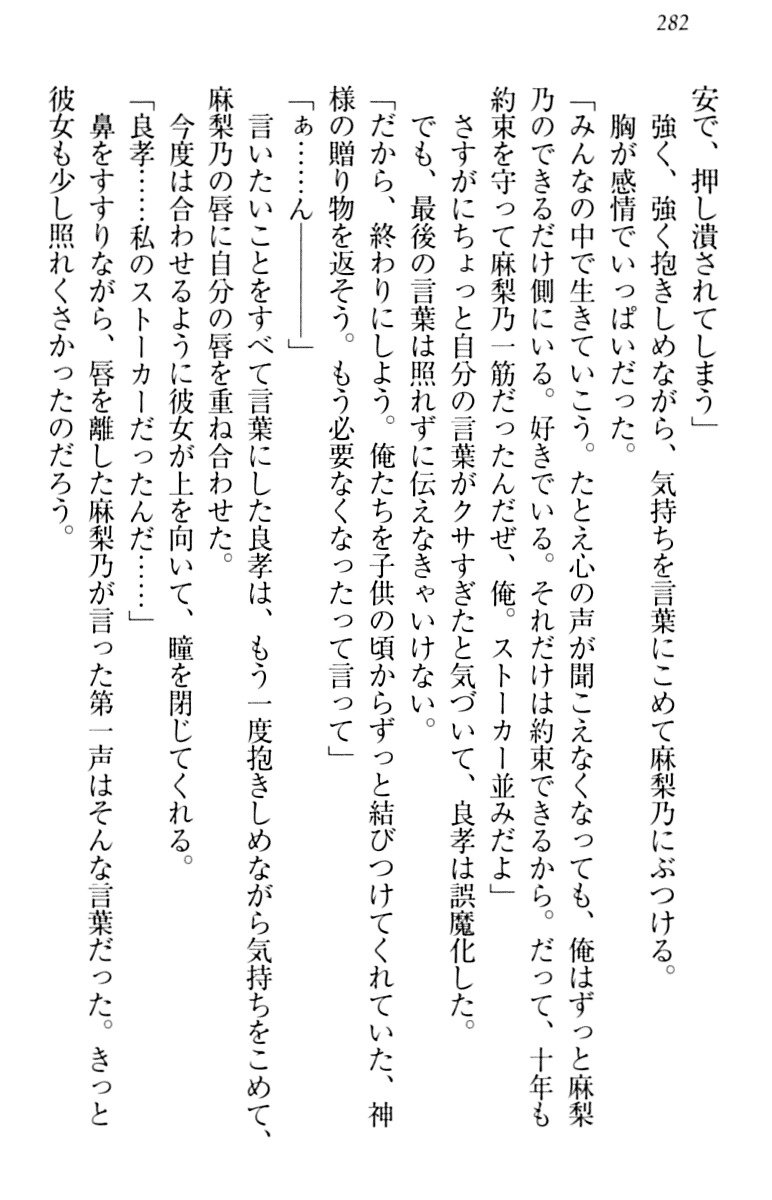 282
安で、押し潰されてしまう」
強く、強く抱きしめながら、気持ちを言葉にこめて麻梨乃にぶつける。
胸が感情でいっぱいだった。
「みんなの中で生きていこう。たとえ心の声が聞こえなくなっても、俺はずっと麻梨
乃のできるだけ側にいる。好きでいる。それだけは約束できるから。だって、十年も
約束を守って麻梨乃一筋だったんだぜ、俺。ストーカー並みだよ」
さすがにちょっと自分の言葉がクサすぎたと気づいて、良孝は誤魔化した。
でも、最後の言葉は照れずに伝えなきゃいけない。
「だから、終わりにしよう。俺たちを子供の頃からずっと結びつけてくれていた、神
様の贈り物を返そう。もう必要なくなったって言って」
「ぁ……ん――――」
言いたいことをすべて言葉にした良孝は、もう一度抱きしめながら気持ちをこめて、
麻梨乃の唇に自分の唇を重ね合わせた。
今度は合わせるように彼女が上を向いて、瞳を閉じてくれる。
「良孝……私のストーカーだったんだ……」
鼻をすすりながら、唇を離した麻梨乃が言った第一声はそんな言葉だった。きっと
彼女も少し照れくさかったのだろう。